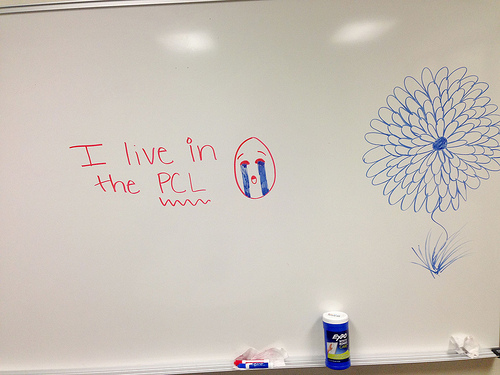 I live in
the PCL
EXPO